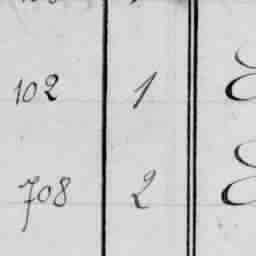 102 1
708 2